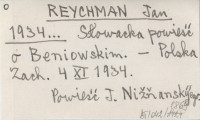 REYCHMAN Jan
1934... Słowacka powieść
o Beniowskim. — Polska
Zach. 4 XI 1934.
Powieść J. Nižňanský